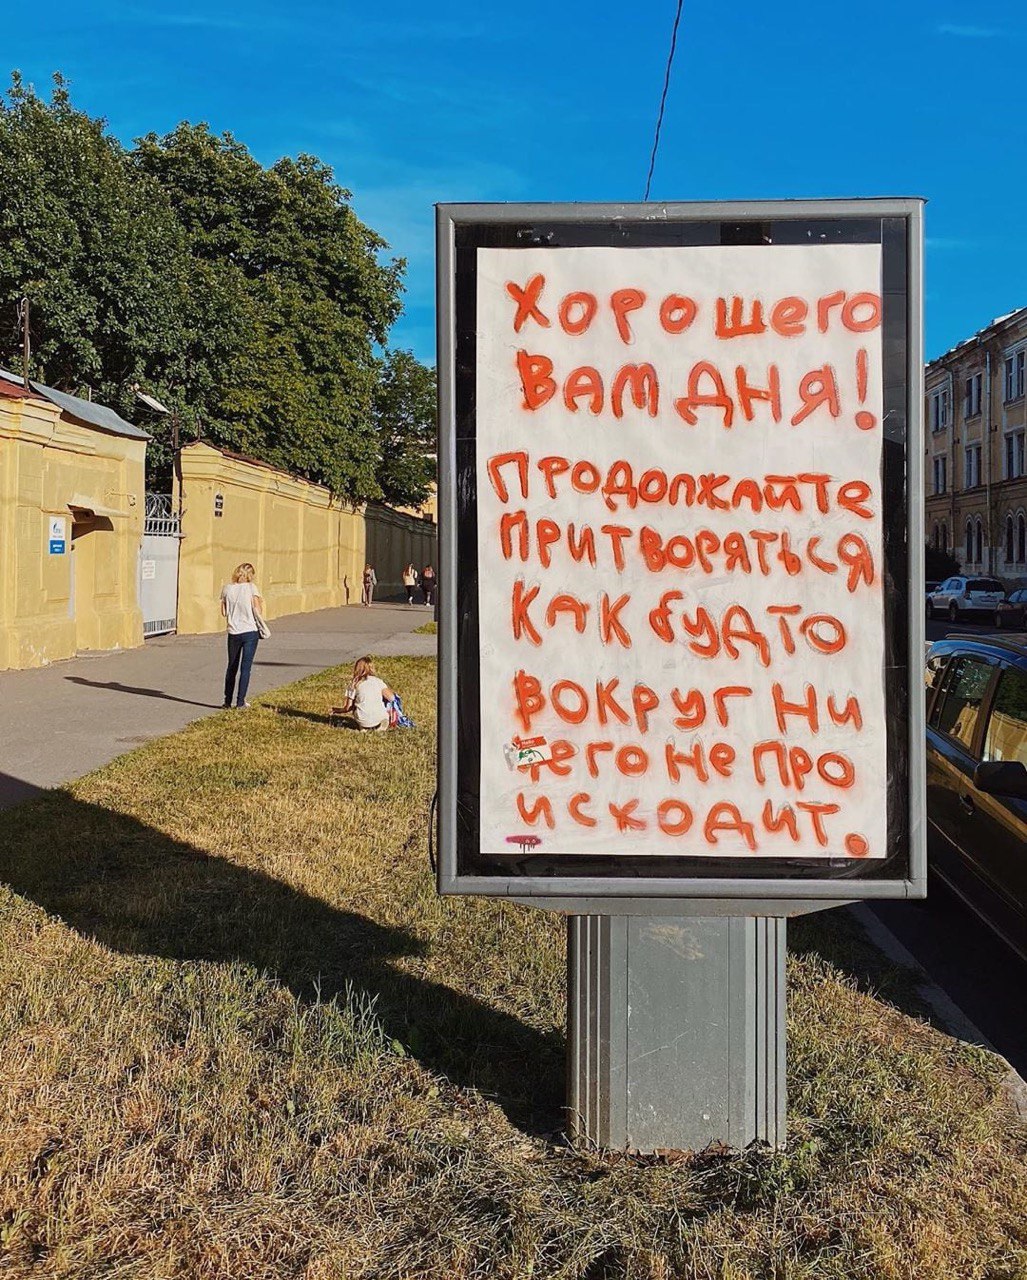 Хорошего
вам дня!
Продолжайте
притворяться
как будто
вокруг ни
чего не про
исходит.